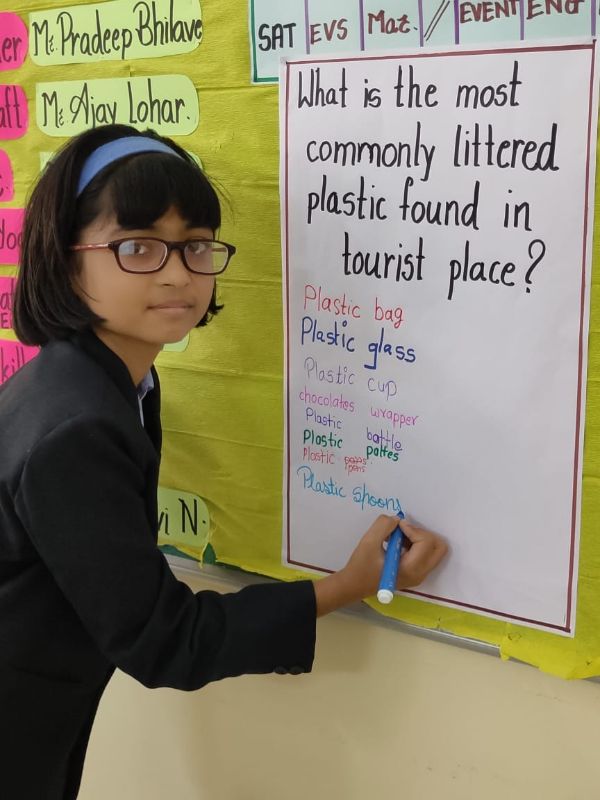 Mr. Pradeep Bhilave
Mr. Ajay Lohar.
vi N.
SAT EVS Mat. // EVENT ENG
What is the most
commonly littered
plastic found in
tourist place?
Plastic bag
Plastic glass
Plastic cup
chocolates wrapper
Plastic bottle
Plostic paltes
Plostic pens
Plastic spoons